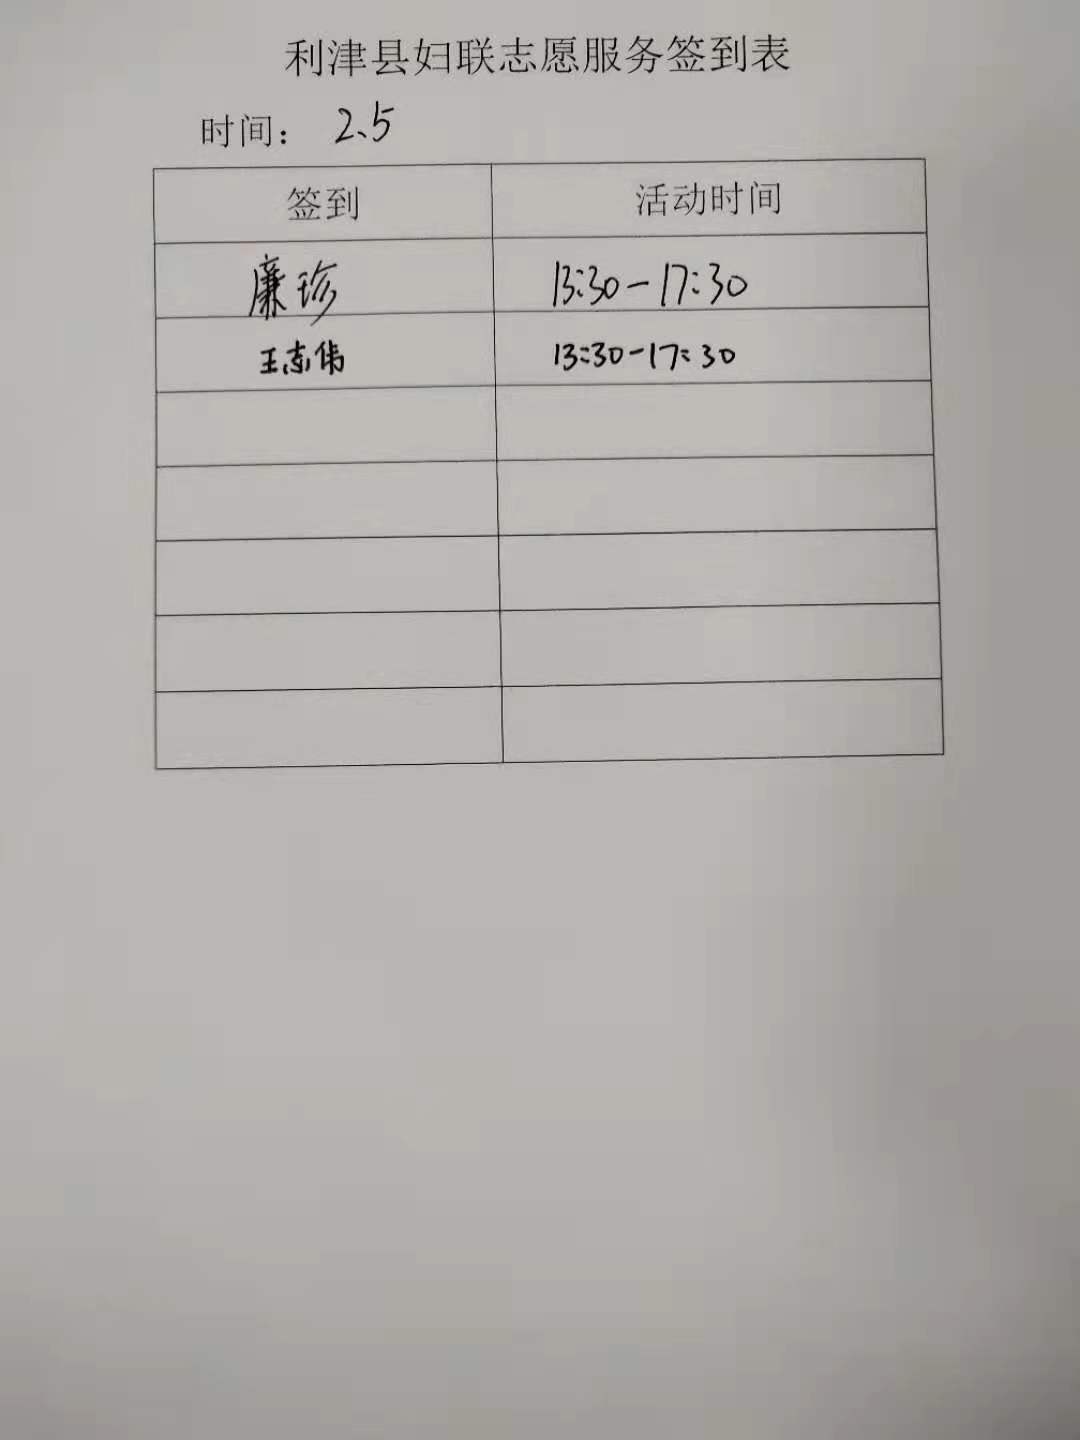 利津县妇联志愿服务签到表
时间： 2.5
签到 活动时间
廉珍 13:30-17:30
王志伟 13:30-17:30